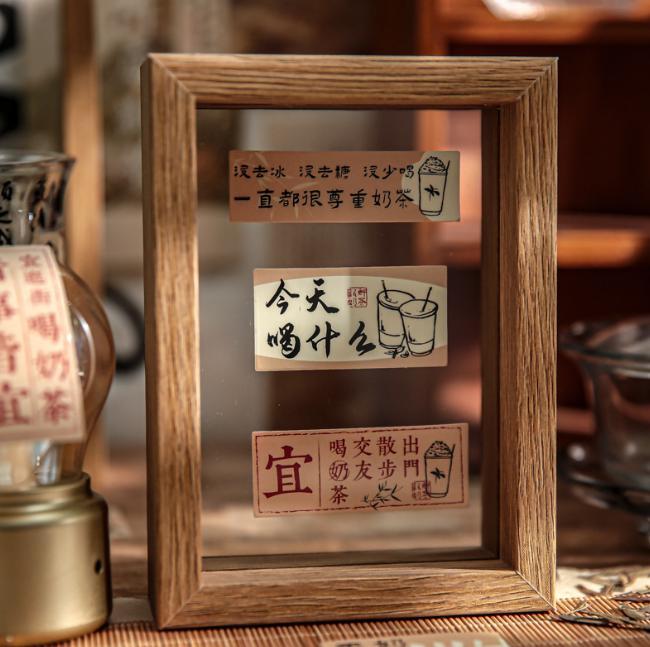 没去冰 没去糖 没少喝
一直都很尊重奶茶
今天
喝什么
宜
出門
散步
交友
喝奶茶
喝奶茶
皆宜